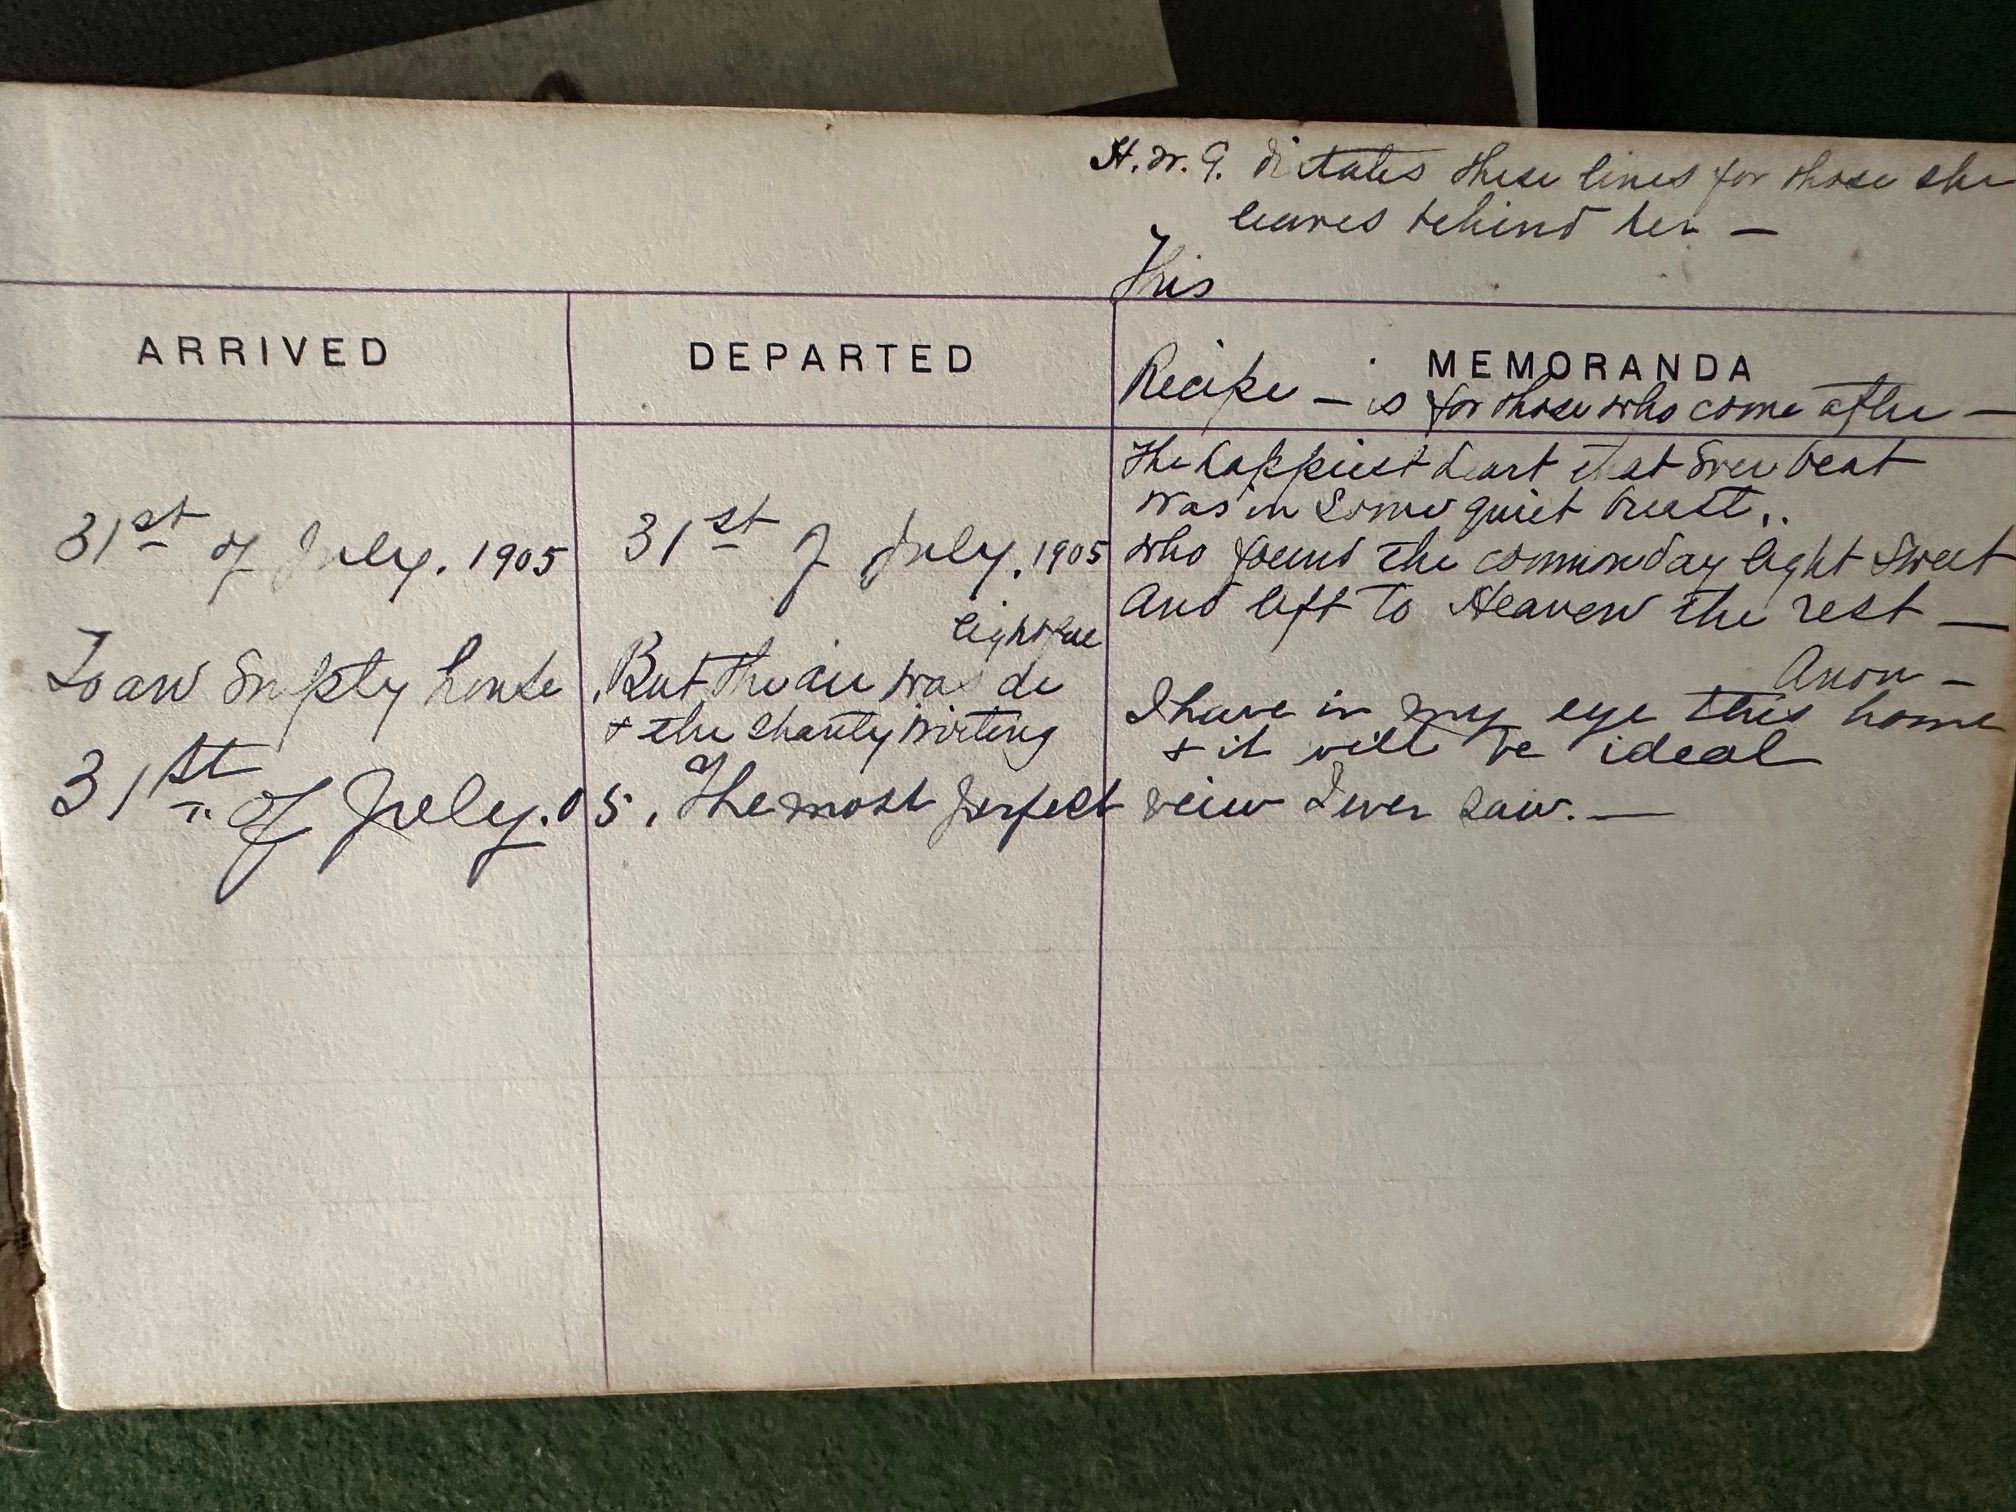 H. W. G. dictates these lines for those she
leaves behind her —
This
ARRIVED DEPARTED MEMORANDA
Recipe — is for those who come after —
The happiest heart that ever beat
Was in some quiet breast,
who found the common day light sweet
And left to Heaven the rest —
Anon —
31st of July. 1905
31st of July. 1905
To an Empty house
But the air was delightful
& the charity writing
I have in my eye this home
& it will be ideal
31st of July. 05. The most perfect view I ever saw. —